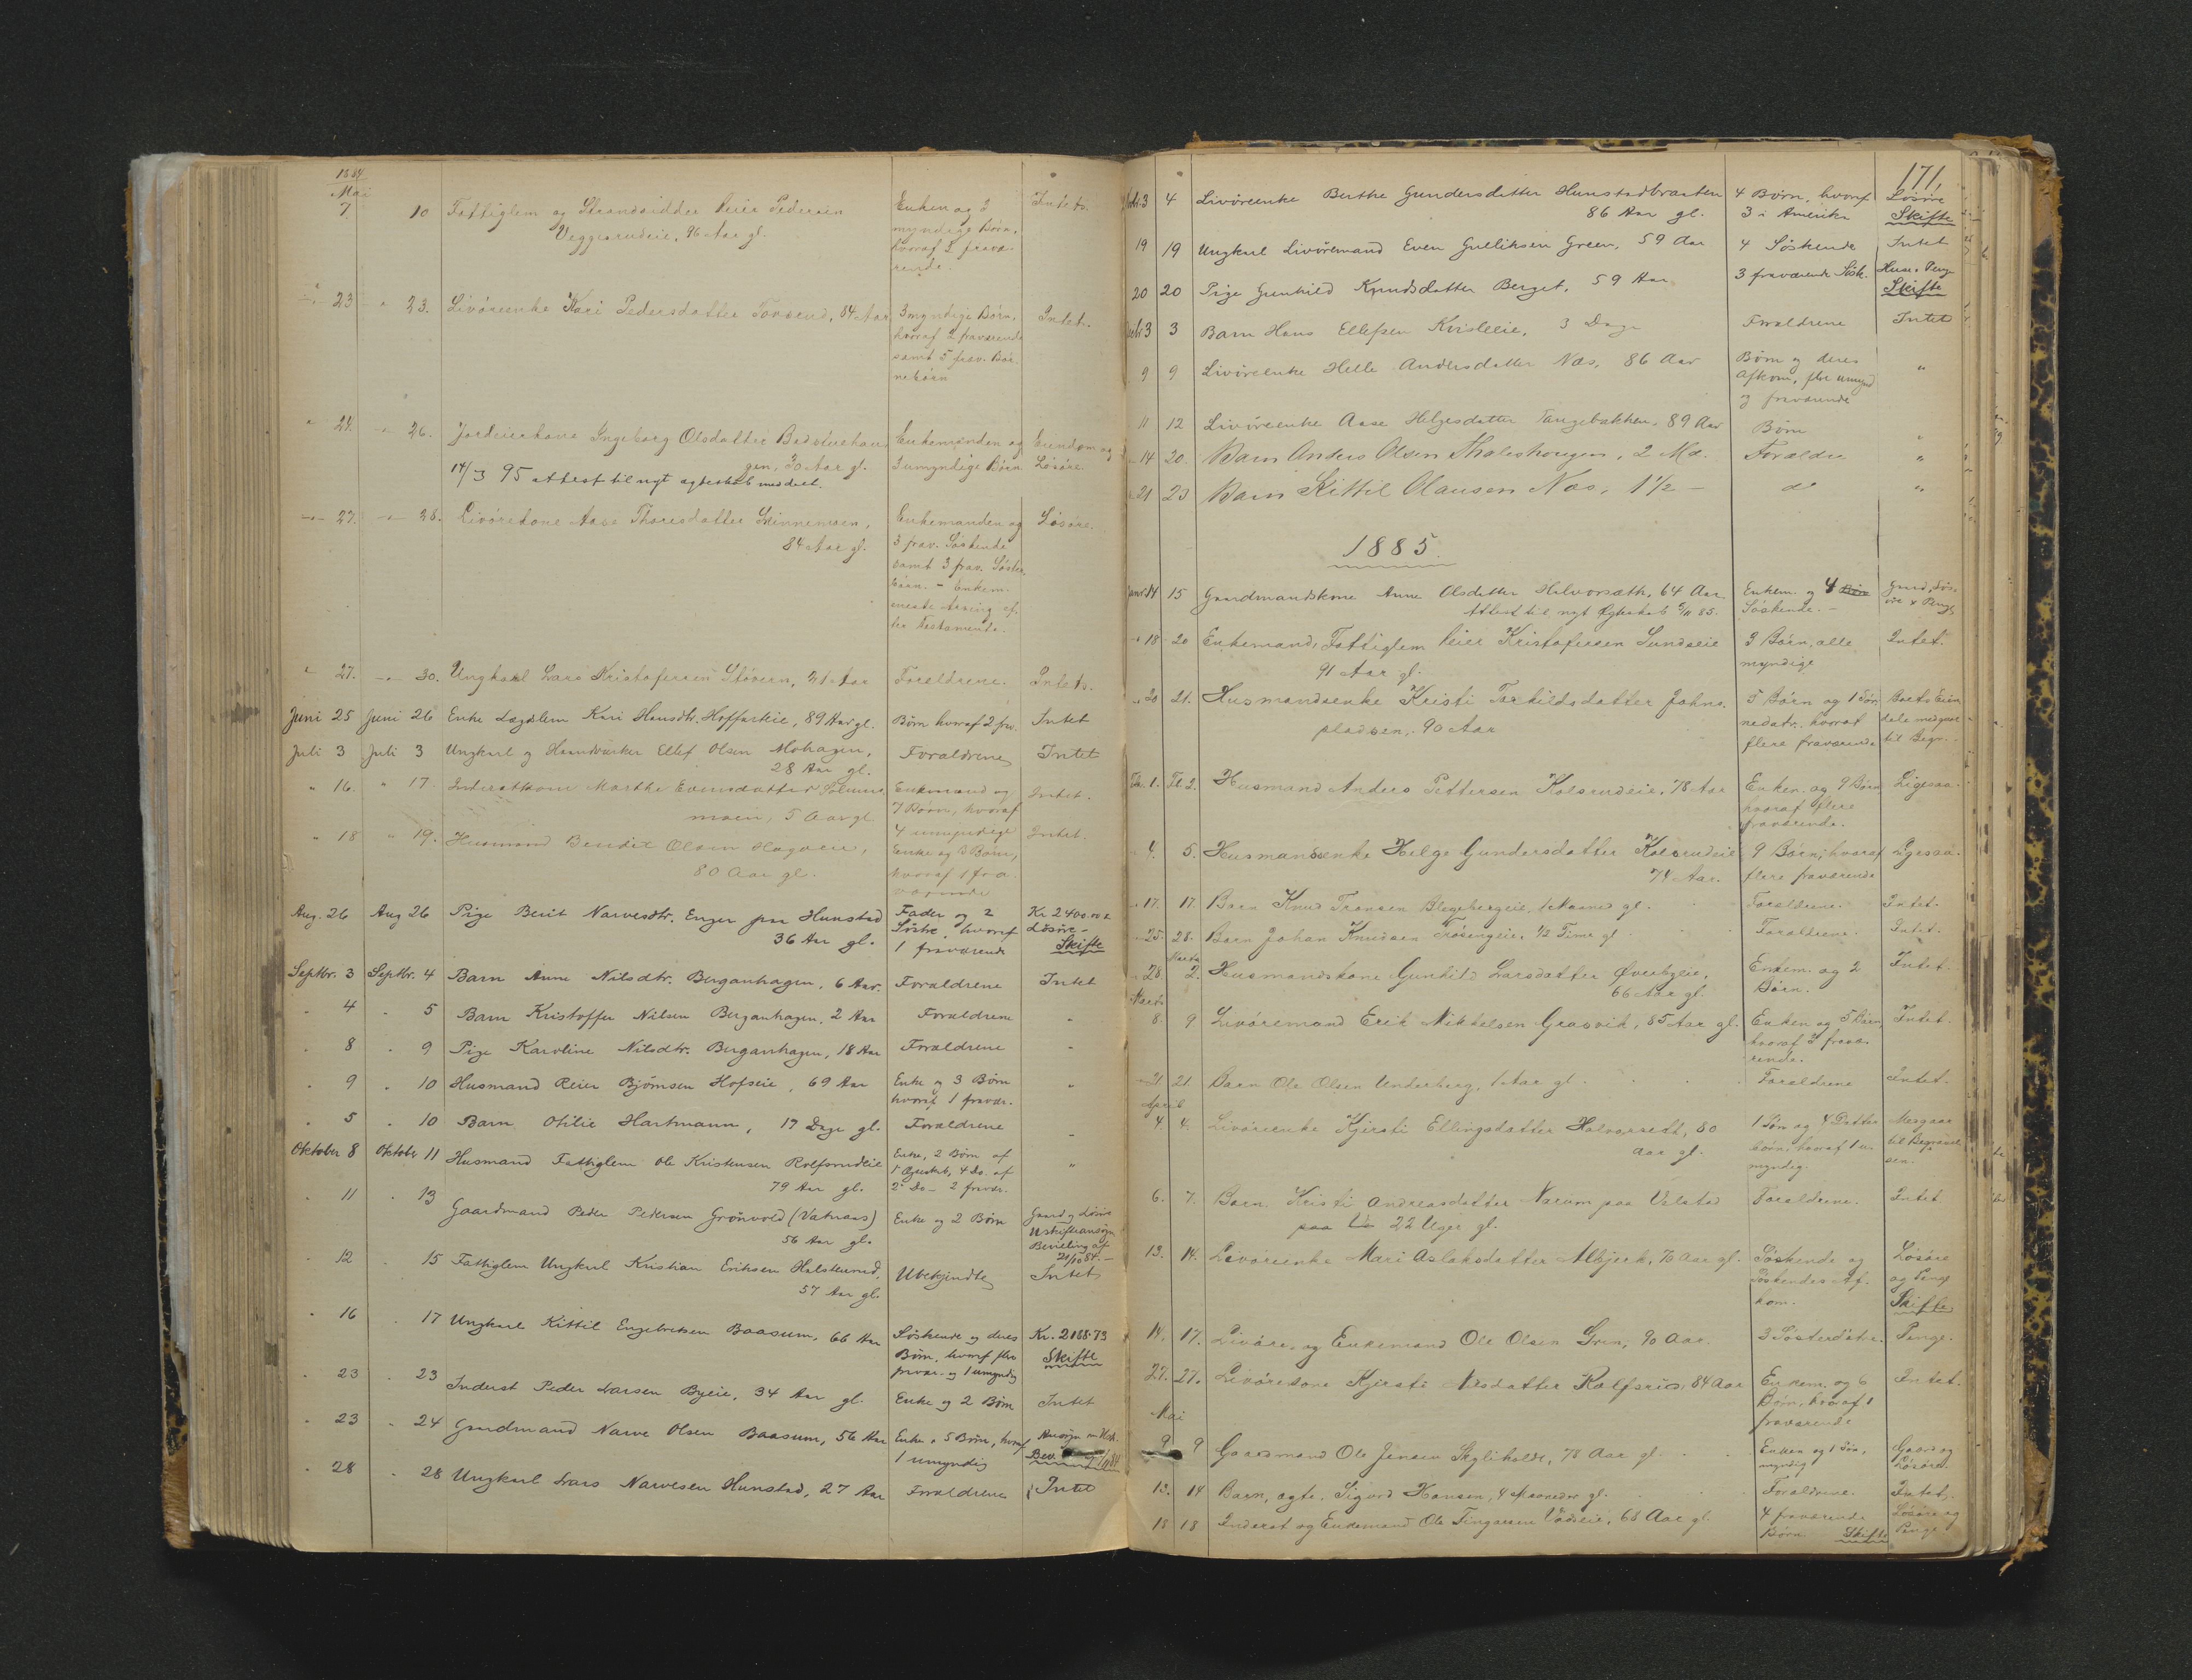 1884
Mai
7. 10 Fattiglem og Strandsidder Peder Pedersen Enken og 3 Intet.
Veggerudeie, 96 Aar gl. myndige Børn,
hvoraf 2 fravæ-
rende.
" 23 " 23. Livöreenke Kari Pedersdatter 84 Aar 3 myndige Børn, Intet.
hvoraf 2 fraværende
samt 5 frav. Bør-
nebörn
" 24. " 26. Jordeierkone Ingeborg Olsdatter Badstuehau- Enkemanden og Eiendom og
gen, 30 Aar gl. 3 umyndige Børn Løsøre.
14/3 95 attest til nyt ægteskab meddelt.
" 27. " 28. Livörekone Aase Thoresdatter Enkemanden og Løsøre.
84 Aar gl. 3 frav. Søskende
samt 3 frav. Søster-
börn. - Enkem.
eneste Arving ef-
ter Testamente.
" 27. " 30. Ungkarl Lars Kristofersen Støvern, 21 Aar Foreldrene. Intet.
Juni 25 Juni 26 Enke Lægdslem Kari Hansdtr. Hoffarteie, 89 Aar gl. Børn hvoraf 2 frv. Intet
Juli 3 Juli 3 Ungkarl og Haandværker Ellef Olsen Mohagen, Forældrene Intet
28 Aar gl.
" 16. " 17. Inderstkone Marthe Evensdatter Enkemand og Intet.
moen, 5 Aar gl 7 Børn, hvoraf
4 umyndige
" 18 " 19. Husmand Bendit Olsen Hagaeie, Enke og 3 Børn, Intet.
80 Aar gl. hvoraf 1 fra-
værende
Aug. 26 Aug 26 Pige Berit Narvesdtr. Enger paa Hunstad Fader og 2 Kr 2400.00 &
36 Aar gl. Søstre, hvoraf Løsøre -
1 fraværende Skifte
Septbr. 3 Septbr. 4 Barn Anne Nilsdtr. Berganhagen, 6 Aar. Forældrene Intet
" 4 " 5 Barn Kristoffer Nilsen Berganhagen, 2 Aar Forældrene "
" 8 " 9 Pige Karoline Nilsdtr. Berganhagen, 18 Aar Forældrene "
" 9 " 10 Husmand Reier Bjørnsen Hofseie, 69 Aar Enke og 3 Børn "
hvoraf 1 fravær.
" 5 " 10 Barn Otilie Hartmann, 17 Dage gl. Forældrene "
Oktober 8 Oktober 11 Husmand Fattiglem Ole Kristensen Rolfsrudeie Enke, 2 Børn af "
79 Aar gl. 1 Ægteskab, 4 Do. af
2 Do - 2 fravær.
" 11 " 13 Gaardmand Peder Pedersen Grönvold (Vatnaas) Enke og 2 Børn Gaard og Løsøre
56 Aar gl. Uskifteansøgn.
Bevilling af
21/10 84. -
" 12 " 15 Fattiglem Ungkarl Kristian Eriksen Halsteinrud, Ubekjendte Intet
57 Aar gl.
" 16 " 17 Ungkarl Kittil Engebretsen Baasum, 66 Aar Søskende og deres Kr. 2168.73
Børn, hvoraf flere Skifte
fravær. og 1 umyndig
" 23 " 23 Inderst Peder Larsen Byeie, 34 Aar gl. Enke og 2 Børn Intet
" 23 " 24 Gaardmand Narve Olsen Baasum, 56 Aar Enke & 5 Børn, hvoraf Ansøgn. om Usk.
1 umyndig Bev.
" 28 " 28 Ungkarl Lars Narvesen Hunstad, 27 Aar Forældrene Intet
171.
3 4 Livöreenke Berthe Gundersdatter Hunstadbraaten 4 Børn, hvoraf Løsøre
86 Aar gl. 3 i Amerika Skifte
19 19 Ungkarl Livöremand Even Gulliksen Green, 59 Aar 4 Søskende Intet
20 20 Pige Gunhild Knudsdatter Berget, 59 Aar 3 fraværende Søsk. Huse & Penge
Skifte
3 3 Barn Hans Ellefsen Kvisleeie, 3 Dage Forældrene Intet
9 9 Livöreenke Helle Andersdatter Næs, 86 Aar Børn og deres "
Afkom, flere umynd
og fraværende
11 12 Livöreenke Aase Helgesdatter Tangebakken, 89 Aar Børn "
14 20. Barn Anders Olsen Tholeshougen, 2 Md. Forældre "
21 23 Barn Kittil Olausen Næs, 1½ - do "
1885.
Januar 14 15 Gaardmandskone Anne Olsdatter Halvorsæth, 64 Aar Enkem. og 4 Børn Gaard, Løs-
Attest til nyt Ægteskab 85. Søskende. - øre & Penge
" 18 20 Enkemand, Fattiglem Peder Kristofersen Sundseie 3 Børn, alle Intet.
91 Aar gl. myndige
" 20 21. Husmandsenke Kristi Torkildsdatter Johns- 5 Børn og 1 Søn- Boets Eien-
pladsen, 90 Aar nedatr. hvoraf dele medgaar
flere fraværende til Begr.
Feb. 1. Feb 2. Husmand Anders Pettersen Kolsrudeie, 78 Aar Enken og 9 Børn Ligesaa.
hvoraf flere
fraværende.
4. 5. Husmandsenke Helge Gundersdatter Kolsrudeie 9 Børn, hvoraf Ligesaa.
74 Aar. flere fraværende
" 17. 17. Barn Knud Transen Blegebergeie, 1 Maaned gl. Foreldrene. Intet.
" 25. 28. Barn Johan Knudsen Frøsengeie, ½ Time gl Foreldrene. Intet.
Marts
" 28 2. Husmandskone Gunhild Larsdatter Øverbyeie, Enkem. og 2 Intet.
66 Aar gl. Børn.
Marts
8. 9 Livöremand Erik Mikkelsen Grasvik, 85 Aar gl. Enken og 5 Børn, Intet.
hvoraf 2 fravæ-
rende.
" 21 21. Barn Ole Olsen Underberg, 1 Aar gl. Foreldrene Intet.
April
4. 4. Livöreenke Kjersti Ellingsdatter Halvorsedt, 80 1 Søn og 4 Datter- Medgaar
Aar gl. börn, hvoraf 1 u- til Begravel-
myndig. sen.
6. 7. Barn Kristi Andreasdatter Narum paa Velstad Foreldrene. Intet
paa 22 Uger gl.
13. 14. Livöreenke Mari Aslaksdatter Albjerk, 70 Aar gl. Söskende og Løsøre
Söskendes Af- og Penge
kom. Skifte
14. 17. Livöre- og Enkemand Ole Olsen Gren, 90 Aar. 3 Søsterdøtre. Penge.
27. 27. Livörekone Kjersti Nilsdatter Rolfsrud, 84 Aar Enkem. og 6 Intet.
Børn, hvoraf 1
fraværende
Mai
9 9 Gaardmand Ole Jensen Skyliholdt, 78 Aar gl. Enken og 1 Søn, Gaard og
myndig Løsøre.
13. 14 Barn, ægte, Sigurd Hansen, 4 Maaneder gl. Foreldrene. Intet.
18 18 Inderst og Enkemand Ole Fingarsen 68 Aar gl. 4 fraværende Løsøre og
Børn. Skifte Penge